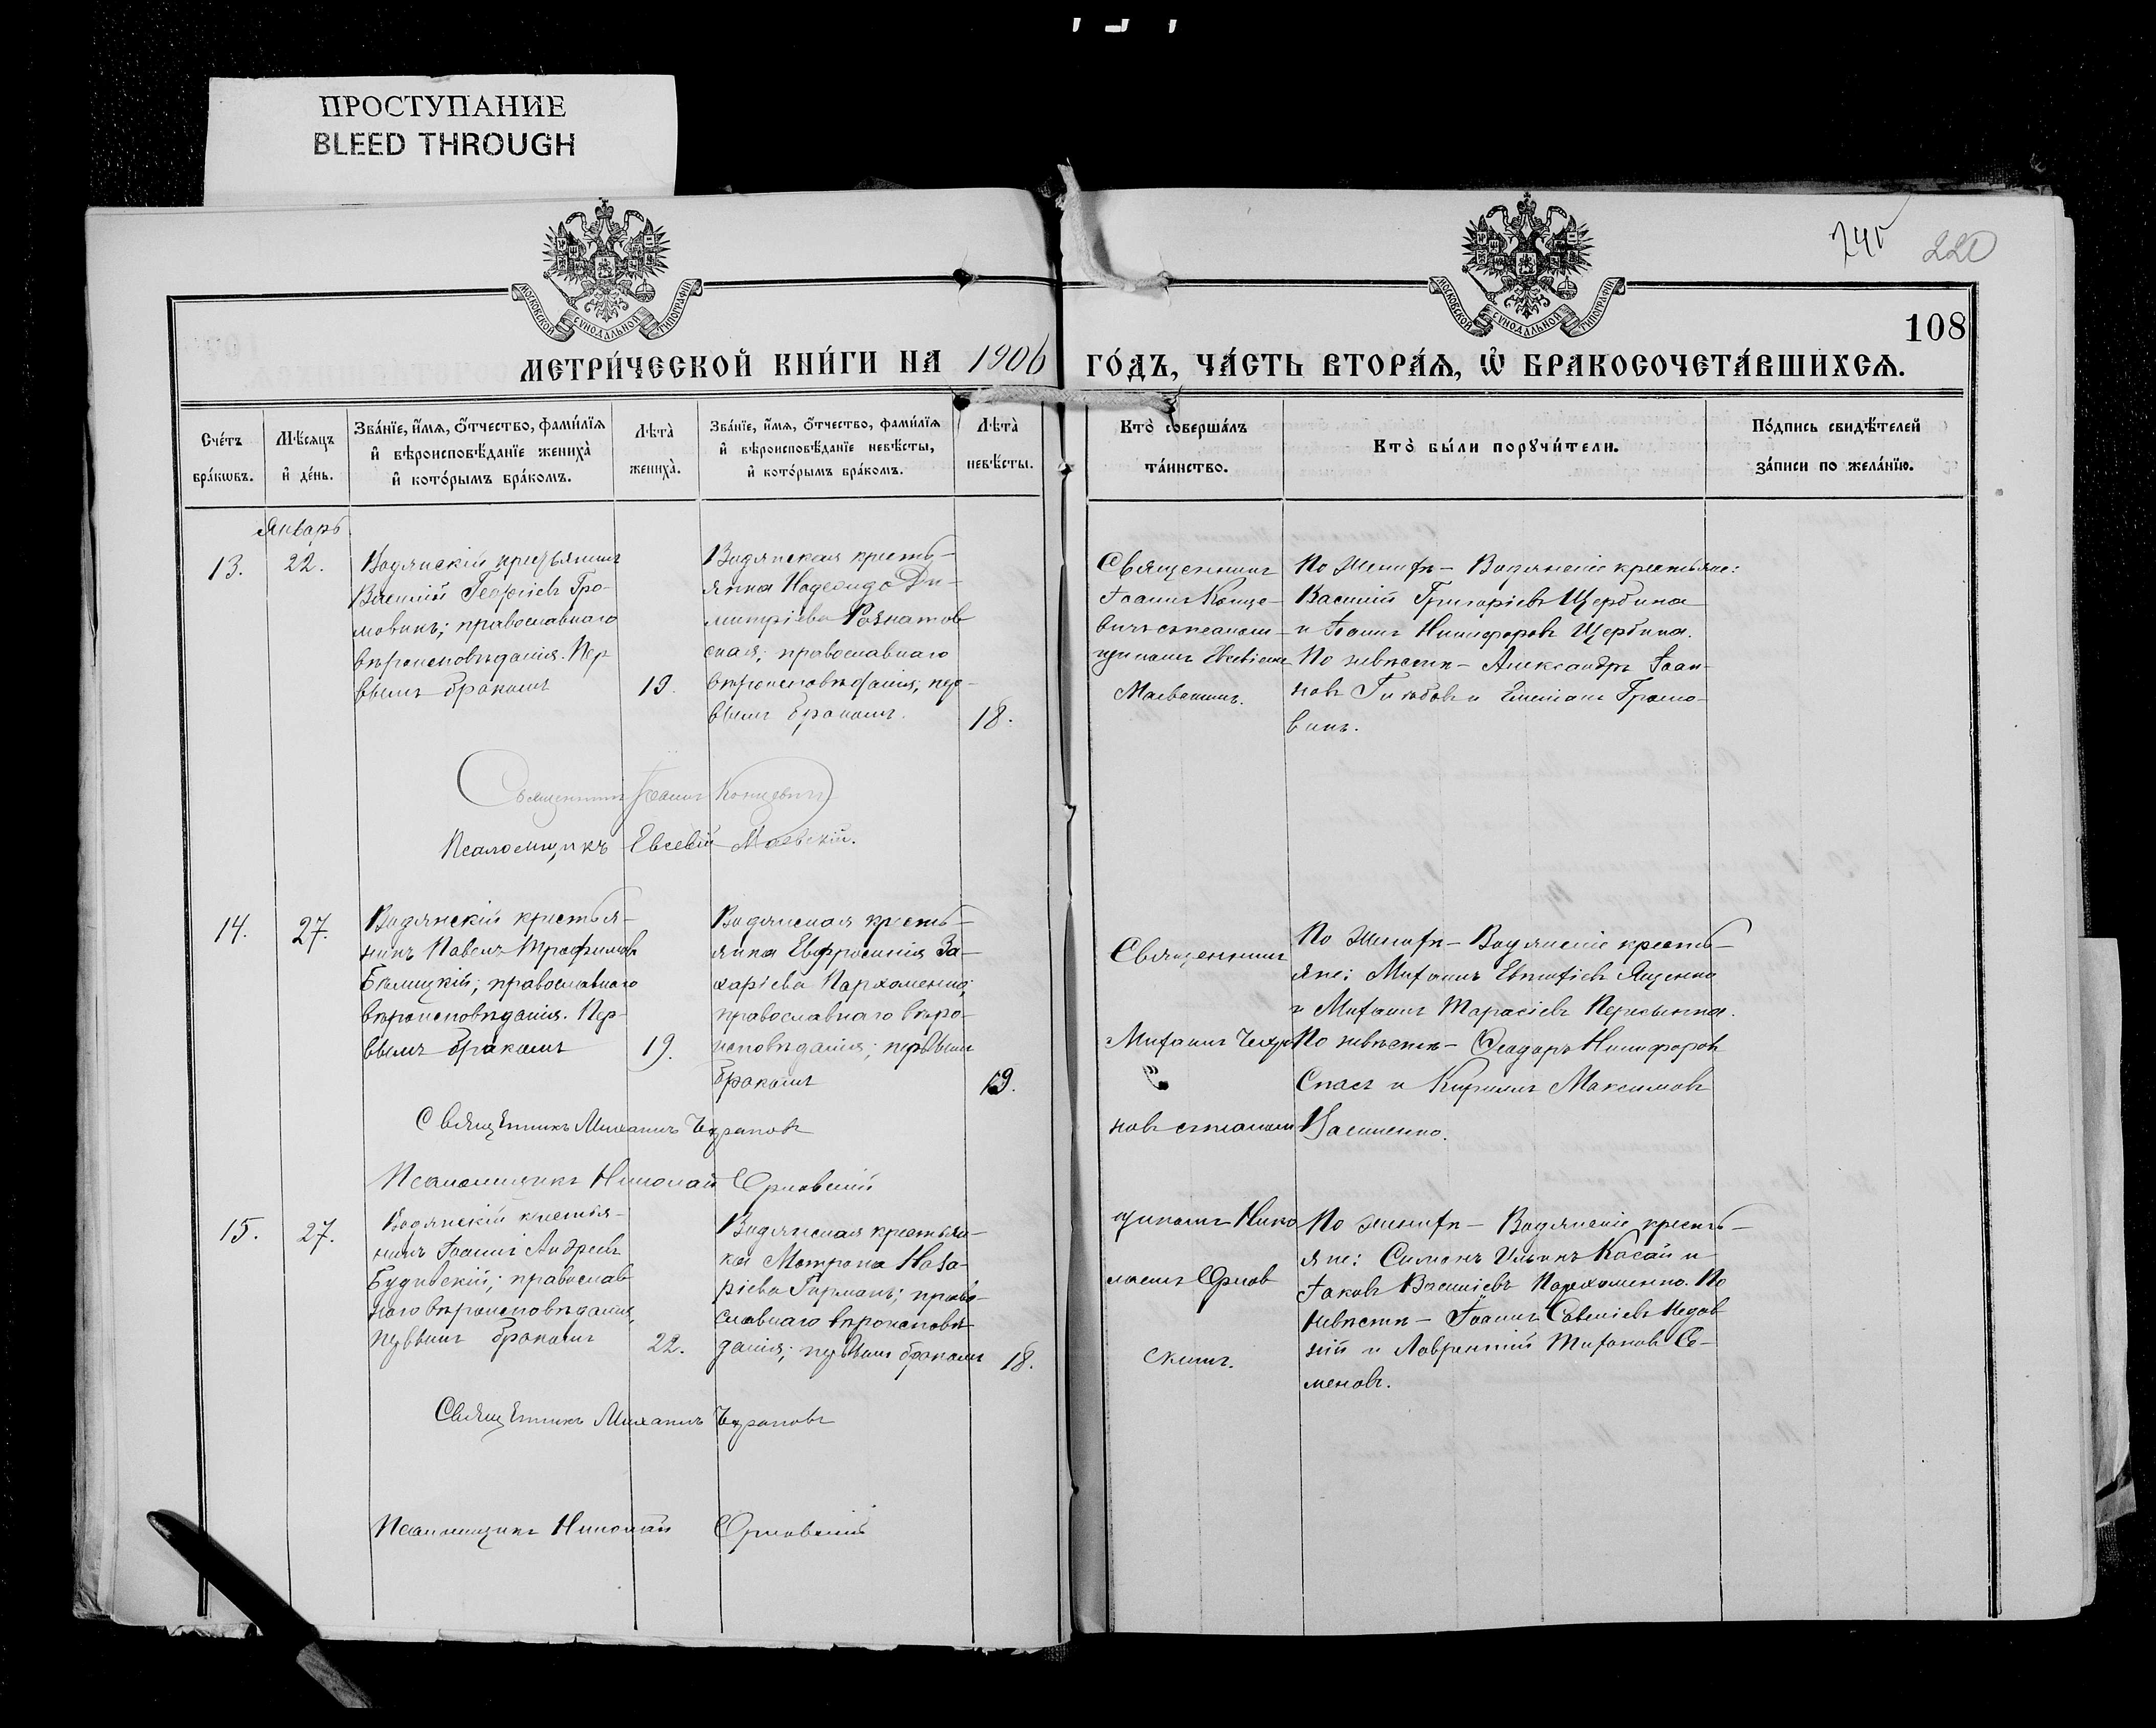 ПРОСТУПАНИЕ
BLEED THROUGH
МОСКОВСКОЙ СУНОДАЛЬНОЙ ТИПОГРАФІИ
МОСКОВСКОЙ СУНОДАЛЬНОЙ ТИПОГРАФІИ
220
108
МЕТРИ́ЧЕСКОЙ КНИ́ГИ НА 1906 ГО́ДЪ, ЧА́СТЬ ВТОРА́Ѧ, Ѡ БРАКОСОЧЕТА́ВШИХСѦ.
Сче́тъ бра́кѡвъ.
Мѣ́сяцъ и де́нь.
Зва́нїе, и́мѧ, ѻ́тчество, фами́лїѧ и вѣроисповѣ́данїе жениха̀ и кото́рымъ бра́комъ.
Лѣта̀ жениха̀.
Зва́нїе, и́мѧ, ѻ́тчество, фами́лїѧ и вѣроисповѣ́данїе невѣ́сты, и кото́рымъ бра́комъ.
Лѣта̀ невѣ́сты.
Кто̀ соверша́лъ та́инство.
Кто̀ бы́ли порꙋчи́тели.
По́дпись свидѣ́телей за́писи по жела́нїю.
Январь
13.
22.
Водянскій крестьянинъ
Василій Георгіевъ Гро-
мовикъ; православнаго
вѣроисповѣданія. Пер-
вымъ бракомъ
19.
Водянская кресть-
янка Надежда Ди-
митріева Рознатов
ская; православнаго
вѣроисповѣданія; пер-
вымъ бракомъ.
18.
Священникъ
Іоаннъ Конце-
вичъ съ псалом-
щикомъ Евсевіем
Маевскимъ.
По женихѣ - Водянскіе крестьяне:
Василій Григоріевъ Щербина
и Іоаннъ Никифоровъ Щербина.
По невѣстѣ - Александръ Іоан-
новъ Голубовъ и Громо-
викъ.
Священникъ Іоаннъ Концевичъ
Псаломщикъ Евсевій Маевскій.
14.
27.
Водянскій крестья-
нинъ Павелъ Трофимовъ
Бѣлицкій; православнаго
вѣроисповѣданія. Пер-
вымъ бракомъ
19.
Водянская кресть-
янка Евфросинія За-
харіева Пархоменко;
православнаго вѣро-
исповѣданія; первымъ
бракомъ
19.
Священникъ
Михаилъ Чехра
новъ съ псалом
щикомъ Нико
лаемъ Орлов
скимъ.
По женихѣ - Водянскіе кресть-
яне: Михаилъ Евтихіевъ Яценко
и Михаилъ Тарасіевъ
По невѣстѣ - Ѳеодоръ Никифоровъ
Спасъ и Кириллъ Максимовъ
Священникъ Михаилъ Чехрановъ
Псаломщикъ Николай Орловскій
15.
27.
Водянскій крестья-
нинъ Іоаннъ Андреевъ
Будивскій; православ
наго вѣроисповѣданія,
первымъ бракомъ
22.
Водянская крестьян-
ка Матрона Наза-
ріева Гармашъ; право-
славнаго вѣроисповѣ-
данія; первымъ бракомъ
18.
По женихѣ - Водянскіе кресть-
яне: Симонъ Ильинъ Касай и
Іаковъ Василіевъ Пархоменко. По
невѣстѣ - Іоаннъ Савеліевъ
и Лаврентій Тихоновъ Се-
меновъ.
Священникъ Михаилъ Чехрановъ
Псаломщикъ Николай Орловскій